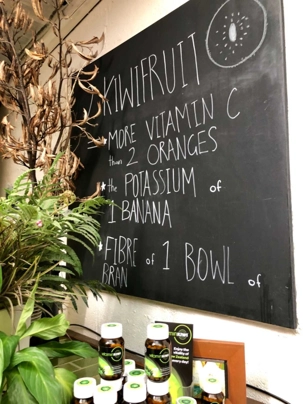 KIWIFRUIT
MORE VITAMIN C
than 2 ORANGES
the POTASSIUM of
1 BANANA
FIBRE of 1 BOWL of
BRAN
Enjoy the